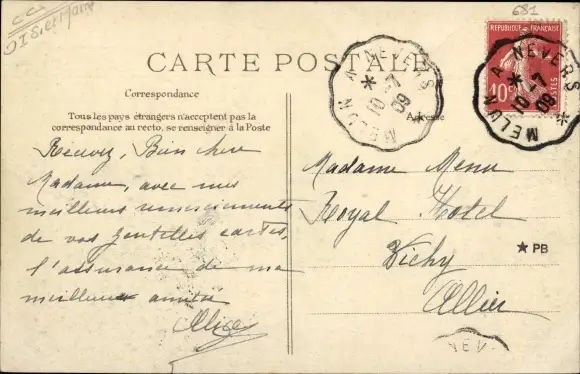 CC
681
CARTE POSTALE
Correspondance
Tous les pays étrangers n'acceptent pas la
correspondance au recto, se renseigner à la Poste
Adresse
MELUN A NEVERS
10 -7
09
REPUBLIQUE FRANÇAISE
10c
POSTES
MELUN A NEVERS
10 -7
09
Recevez, Bien chère
Madame, avec mes
meilleurs remerciements
de vos gentilles cartes,
l'assurance de ma
meilleure amitié
Alice
Madame Menu
Royal Hotel
Vichy
Allier
★ PB
NEV